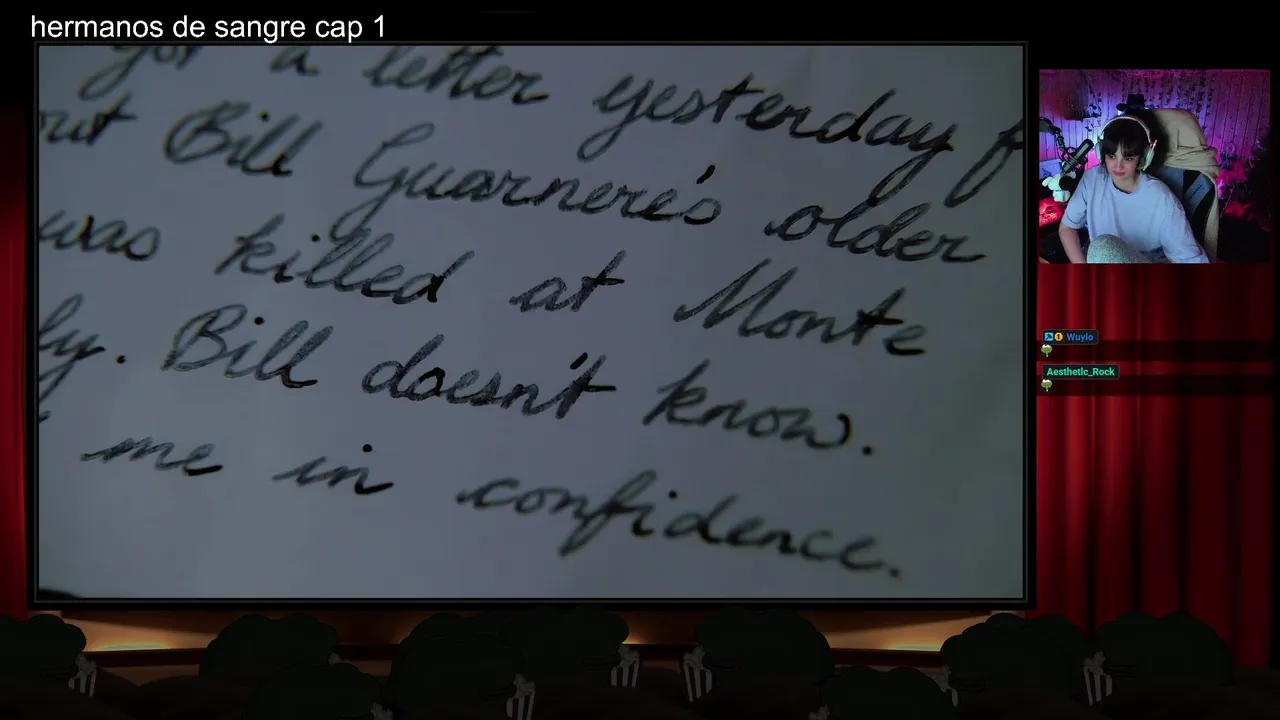 hermanos de sangre cap 1
got a letter yesterday f
out Bill Guarnere's older
was killed at Monte
ly. Bill doesn't know.
me in confidence.
Wuylo
Aesthetlc_Rock